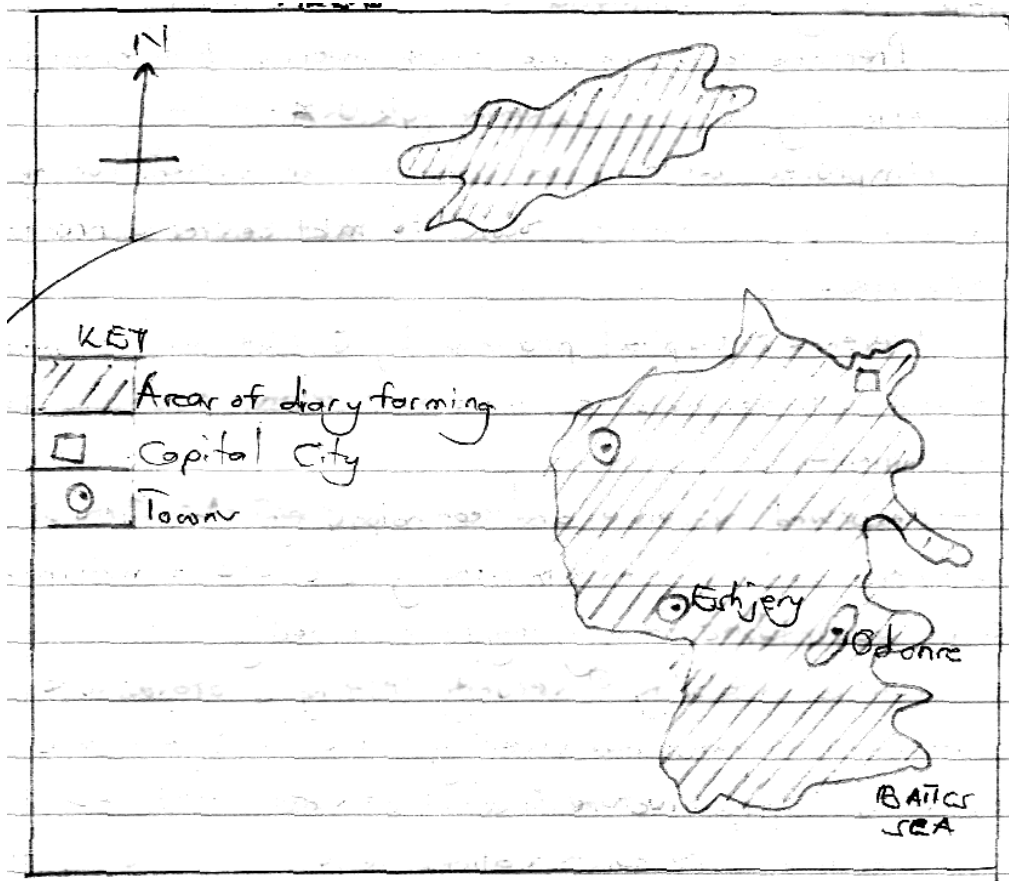 N
KEY
Arear of diary farming
Capital City
Town
Esbjery
Odonre
BALTICS
SEA